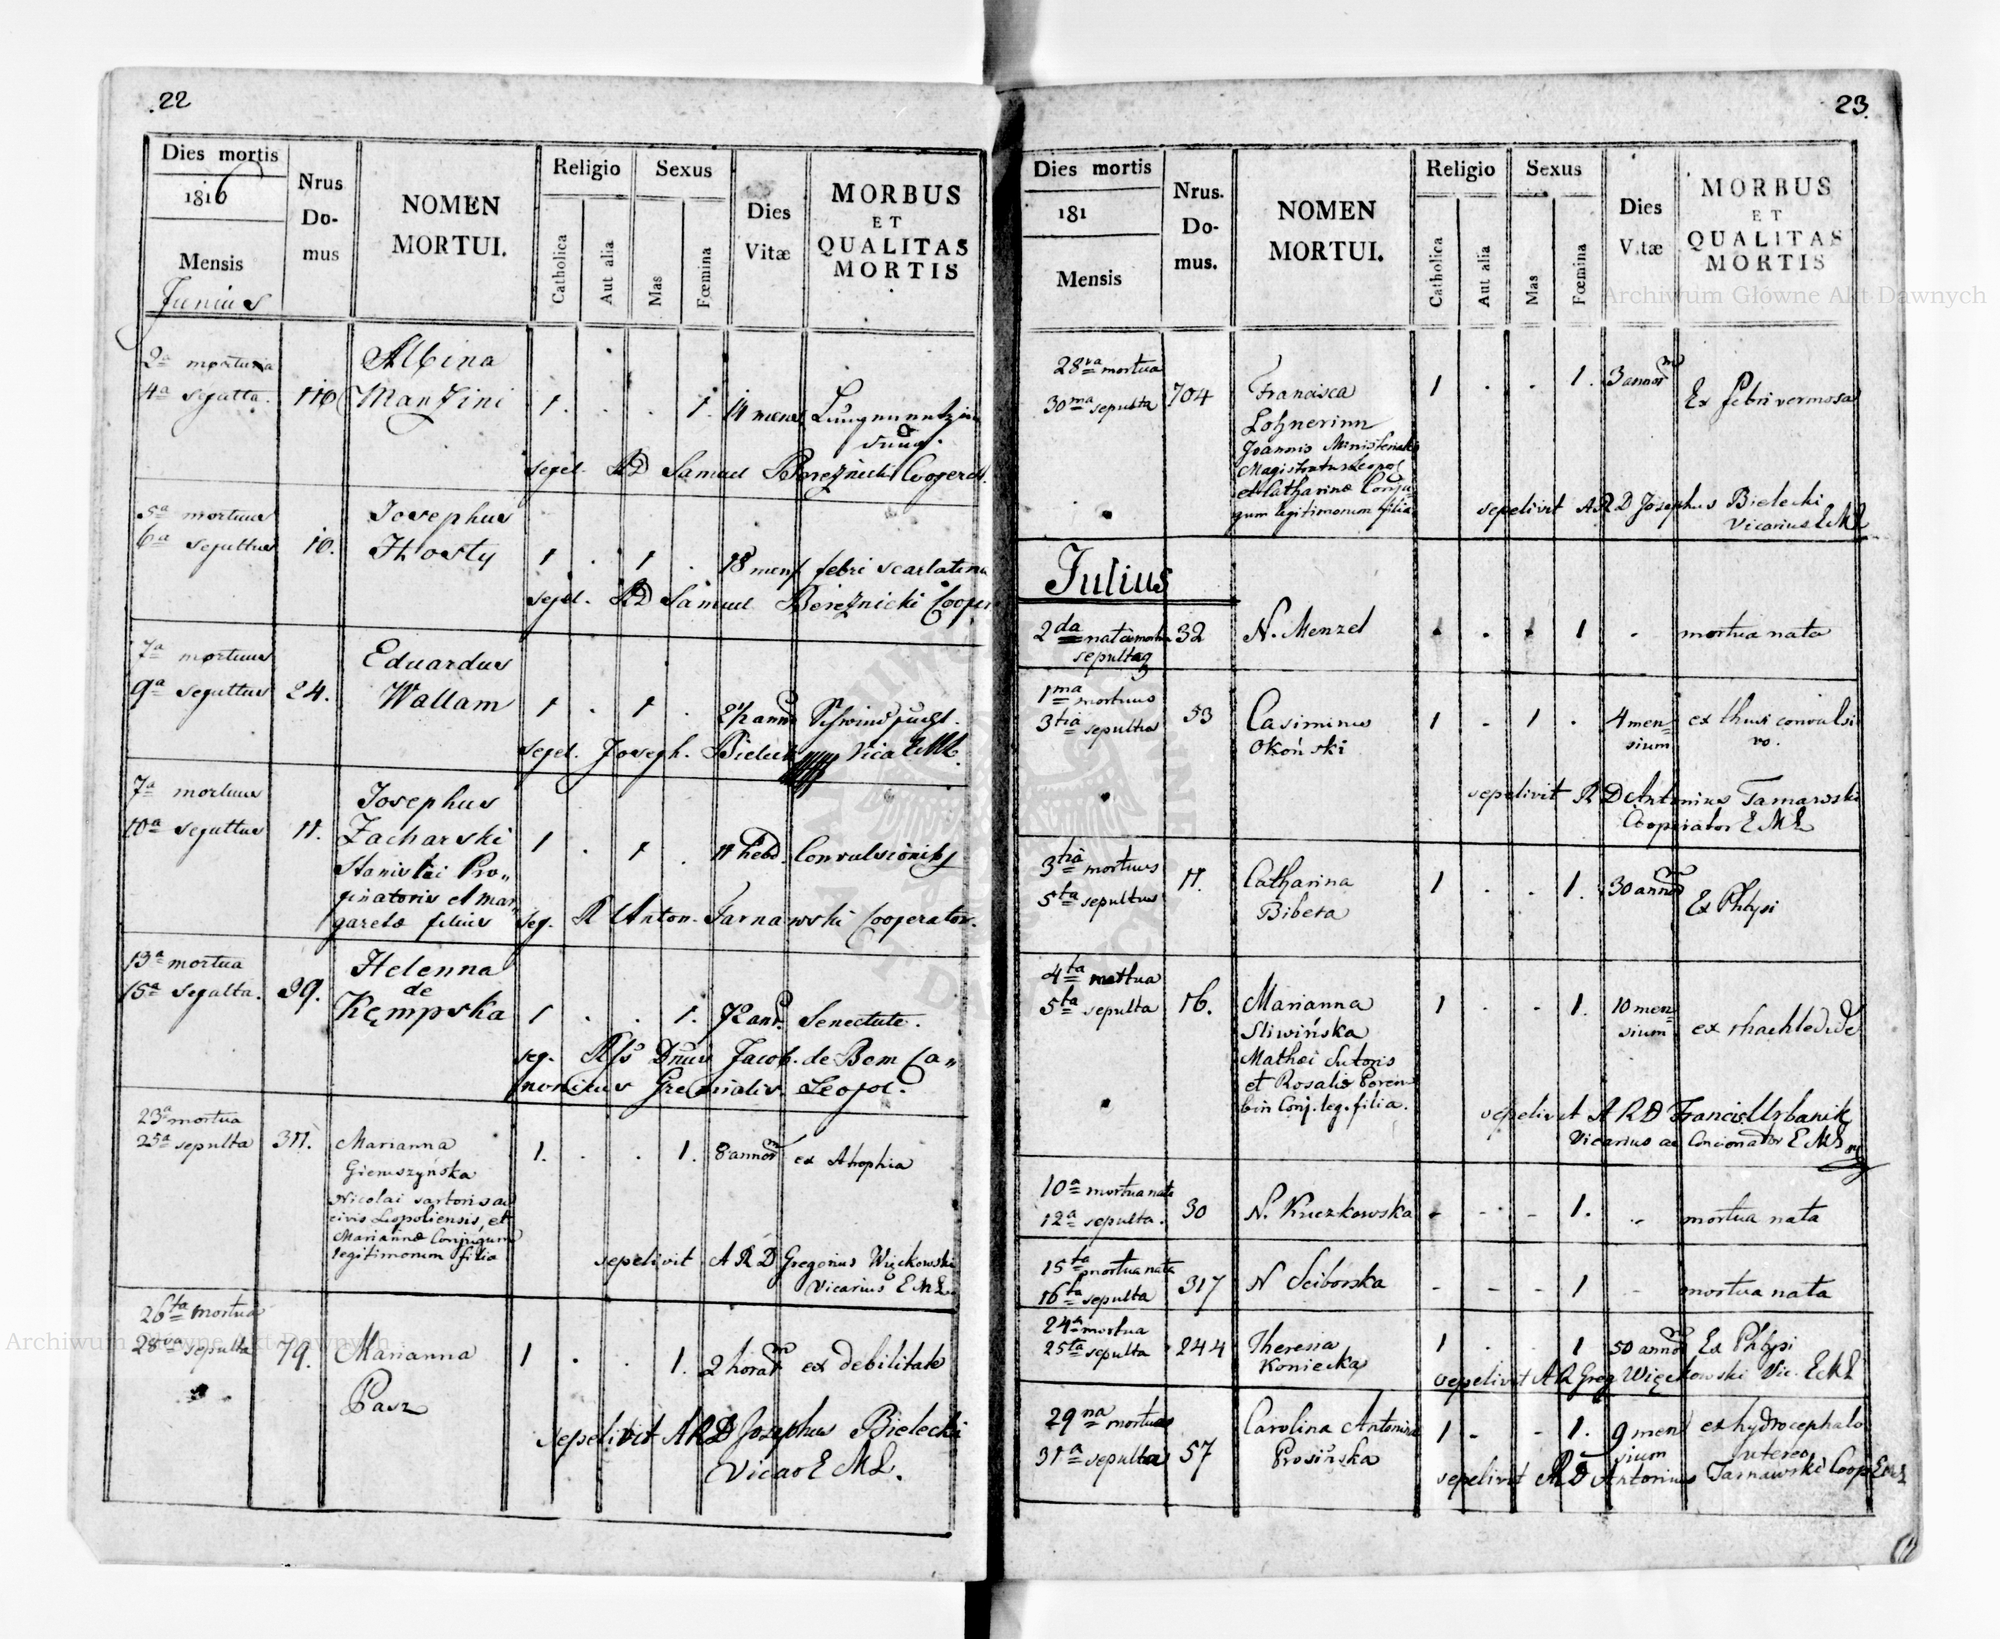 22
Dies mortis
1816
Mensis
Junius
Nrus
Do-
mus
NOMEN
MORTUI.
Religio
Catholica
Aut alia
Sexus
Mas
Fœmina
Dies
Vitæ
MORBUS
ET
QUALITAS
MORTIS
2a mortua
4a sepulta.
110
Albina
Manzini
1. . . 1.
14 mens
sepel. RD Samuel Bereznicki Cooperat.
5a mortuus
6a sepultus
10.
Josephus
Thosty
1 . 1 .
18 mens
febri scarlatina
sepel. RD Samuel Bereznicki Cooper
7a mortuus
9a sepultus
24.
Eduardus
Wallam
1 . 1 .
2½ ann
Schwindsucht.
sepel. Joseph. Bielecki Vica EML.
7a mortuus
10a sepultus
11.
Josephus
Zacharski
Stanislai Pro„
pinatoris et Mar„
garetæ filius
1 . 1 .
11 hebd.
Convulsionibs
sep. R Anton. Tarnawski Cooperator.
13a mortua
15a sepulta.
39.
Helenna
de
Kępmska
1 . . 1.
72 ann.
Senectute.
sep. Rss Dnus Jacob. de Bem Ca„
nonicus Gremialis Leopol.
23a mortua
25a sepulta
311.
Marianna
Nicolai sartoris ac
civis Leopoliensis, et
Mariannæ Conjugum
legitimorum filia
1. . . 1.
8 annor
ex Atrophia
sepelivit A R D Gregorius Więckowski
Vicarius E M L.
26ta mortua
28va sepulta
79.
Marianna
Pasz
1 . . 1.
2 horar
ex debilitate
sepelivit A R D Josephus Bielecki
Vicar E M L.
23.
Dies mortis
181
Mensis
Nrus.
Do-
mus.
NOMEN
MORTUI.
Religio
Catholica
Aut alia
Sexus
Mas
Fœmina
Dies
Vitæ
MORBUS
ET
QUALITAS
MORTIS
28va mortua
30ma sepulta
704
Francisca
Lohnerinn
Joannis Ministerialis
Magistratus Leopol
et Catharinæ Conju-
gum legitimorum filia
1 . . 1.
3 annor
Ex febri vermosa
sepelivit A R D Josephus Bielecki
Vicarius E M L
Julius
2da nata mortua
sepulta
32
N. Menzel
1
mortua nata
1ma mortuus
3tia sepultus
53
Casimirus
Okoński
1 - 1 .
4 men-
sium
ex thusi convulsi
vo.
sepelivit R D Antonius Tarnawski
Cooperator E M L
3tia mortuus
5ta sepultus
11.
Catharina
Bibera
1 . . 1.
30 annor
Ex Phtysi
4ta mortua
5ta sepulta
16.
Marianna
Sliwińska
Mathæi Sutoris
et Rosaliæ Poren
bin Conj. leg. filia.
1 . - 1.
10 men-
sium
sepelivit A R D Francis. Urbanik
Vicarius ac Concionator E M L
10a mortua nata
12a sepulta.
30
N. Kuczkowska
- - - 1.
mortua nata
15ta mortua nata
16ta sepulta
317
N Sciborska
- - - 1
mortua nata
24a mortua
25ta sepulta
244
Theresia
Koniecka
1 . . 1
50 annor
Ex Phtysi
sepelivit A R Greg Więckowski Vic. EML
29na mortua
31a sepulta
57
Carolina Antonina
Prosińska
1 - - 1.
9 men
sium
ex hydrocephalo
sepelivit R D Antonius Tarnawski Coop EML
Archiwum Główne Akt Dawnych
Archiwum Główne Akt Dawnych